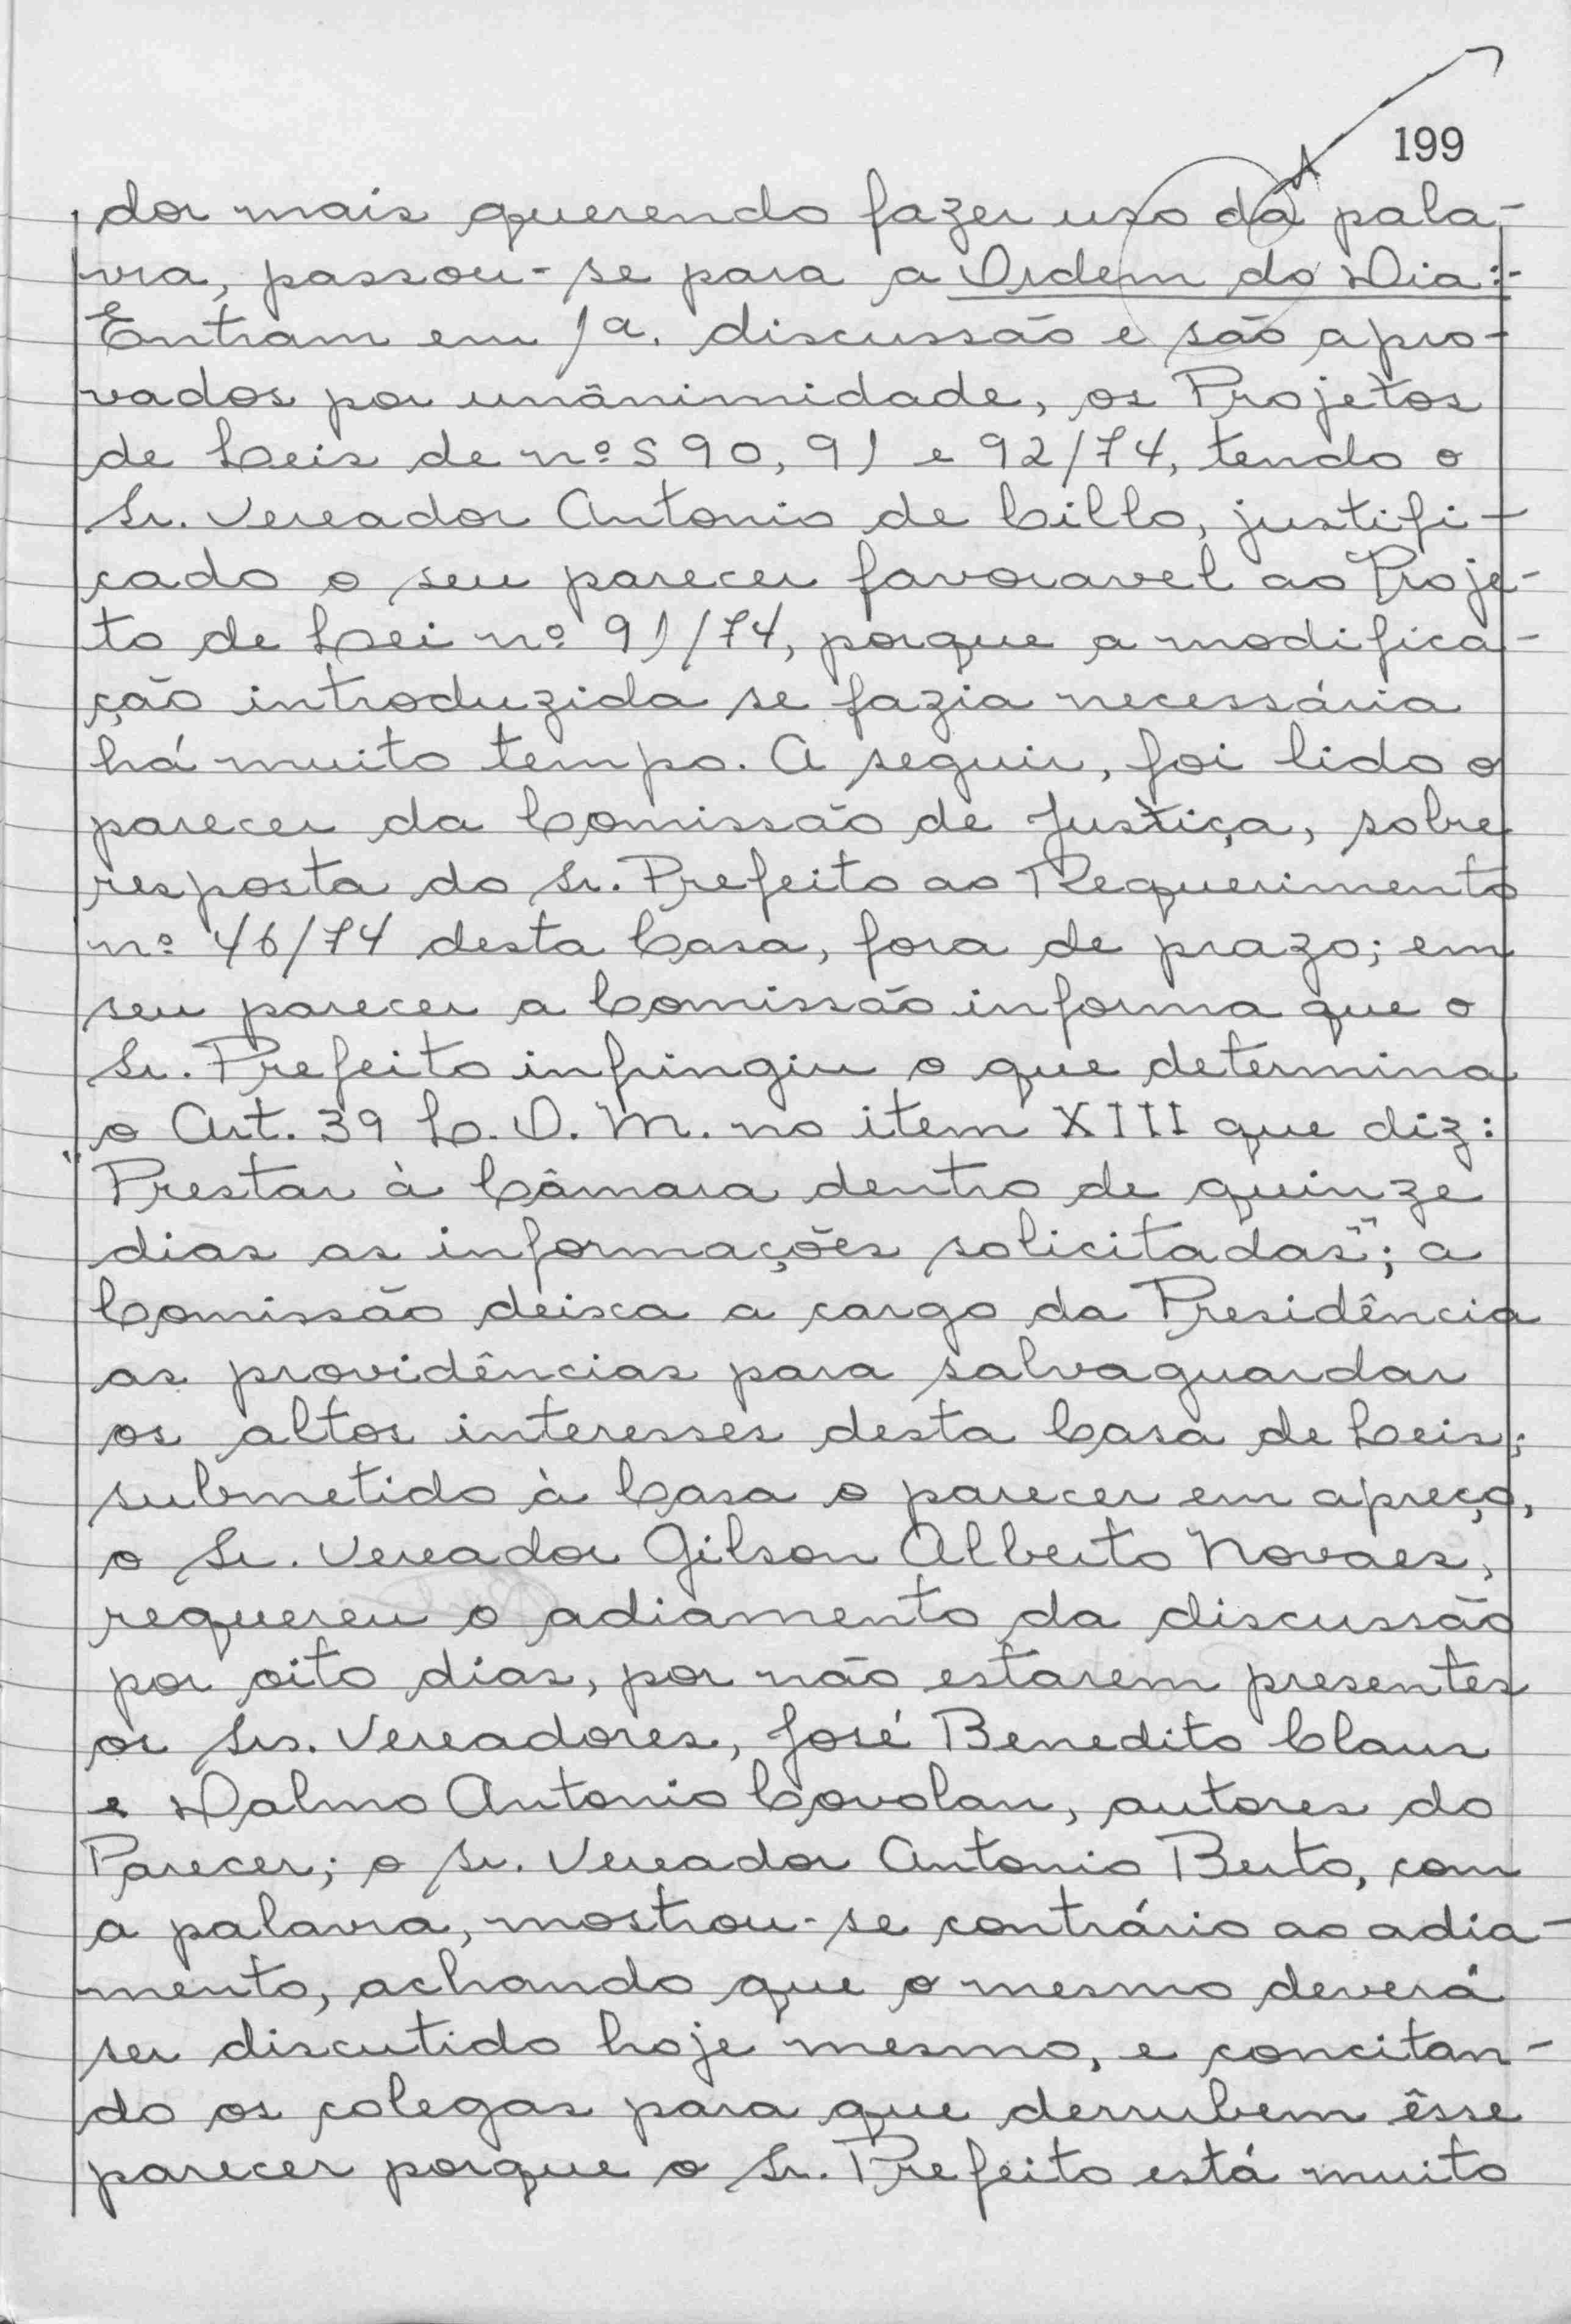 199
dor mais querendo fazer uso da pala-
vra, passou-se para a Ordem do Dia:-
Entram em 1a. discussão e são apro-
vados por unânimidade, os Projetos
de Leis de nºs 90, 91 e 92/74, tendo o
Sr. Vereador Antonio de Cillo, justifi-
cado o seu parecer favoravel ao Proje-
to de Lei nº 91/74, porque a modifica-
ção introduzida se fazia necessária
há muito tempo. A seguir, foi lido o
parecer da Comissão de Justiça, sobre
resposta do Sr. Prefeito ao Requerimento
nº 46/74 desta Casa, fora de prazo; em
seu parecer a Comissão informa que o
Sr. Prefeito infringiu o que determina
o Art. 39 L.O.M. no item XIII que diz:
"Prestar à Câmara dentro de quinze
dias as informações solicitadas"; a
Comissão deixa a cargo da Presidência
as providências para salvaguardar
os altos interesses desta Casa de Leis;
submetido à Casa o parecer em apreço,
o Sr. Vereador Gilson Alberto Novaes,
requereu o adiamento da discussão
por oito dias, por não estarem presentes
os Srs. Vereadores, José Benedito Claus
e Dalmo Antonio Covolan, autores do
Parecer; o Sr. Vereador Antonio Berto, com
a palavra, mostrou-se contrário ao adia-
mento, achando que o mesmo deverá
ser discutido hoje mesmo, e concitan-
do os colegas para que derrubem êsse
parecer porque o Sr. Prefeito está muito